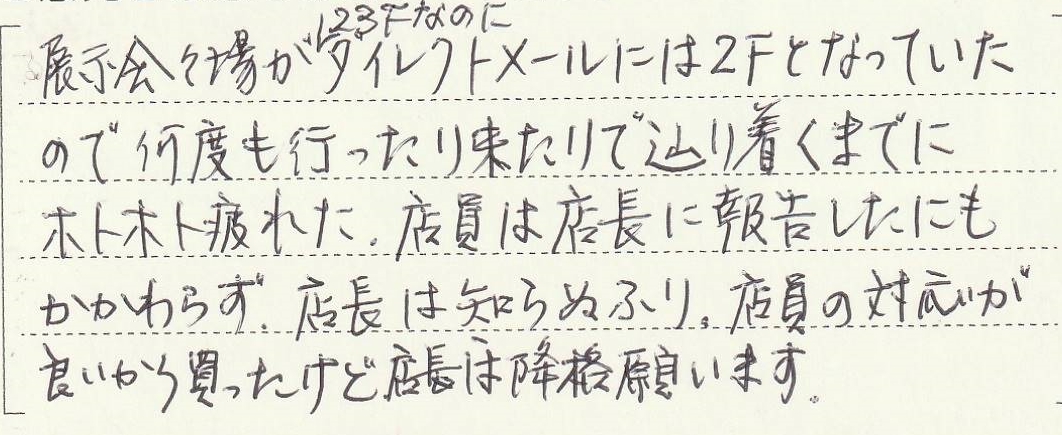 123Fなのに
展示会々場がダイレクトメールには2Fとなっていた
ので何度も行ったり来たりで辿り着くまでに
ホトホト疲れた。店員は店長に報告したにも
かかわらず、店長は知らぬふり。店員の対応が
良いから買ったけど店長は降格願います。